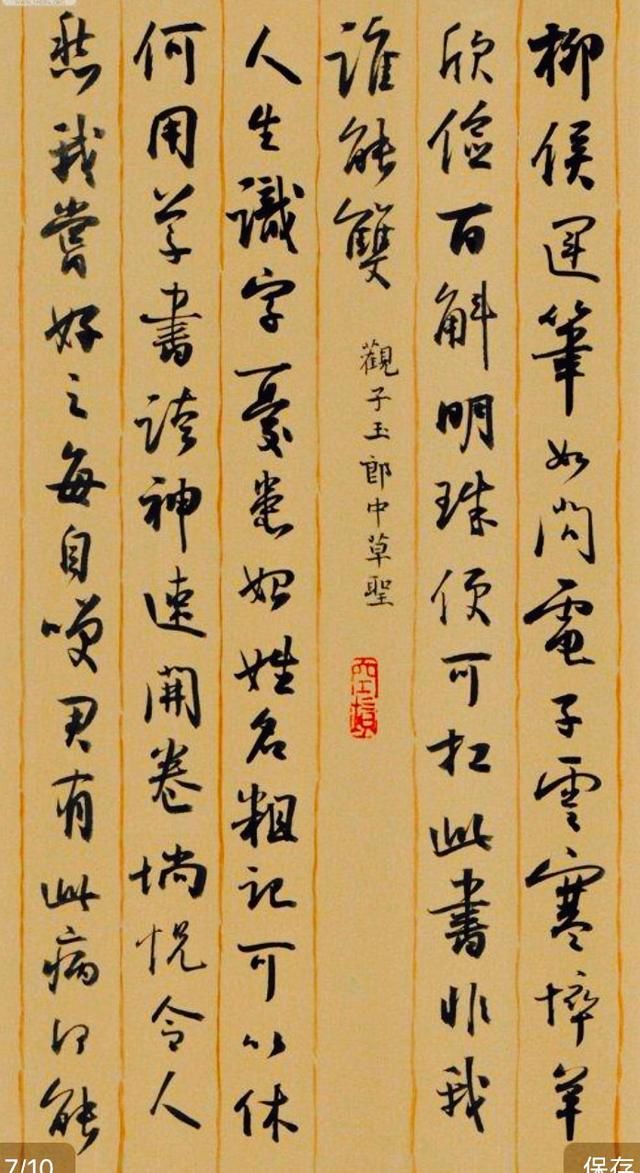 柳侯運筆如閃電子雲寒悴羊
欣儉百斛明珠便可扛此書非我
誰能雙
觀子玉郎中草聖
人生識字憂患始姓名粗記可以休
何用草書誇神速開卷惝怳令人
愁我嘗好之每自咲君有此病何能
7/10
保存